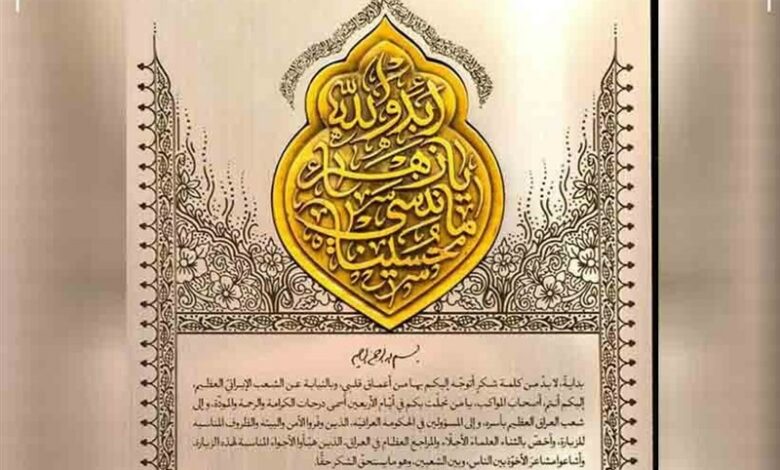 أبد والله
يا زهراء
ما ننسى
حسيناه
بسم الله الرحمن الرحيم
بدايةً، لا بدّ من كلمة شكرٍ أتوجّه إليكم بها من أعماق قلبي، وبالنيابة عن الشعب الإيرانيّ العظيم،
إليكم أنتم أصحاب المواكب، يا من تجلّت بكم في أيّام الأربعين أسمى درجات الكرامة والرحمة والمودّة. و إلى
شعب العراق العظيم بأسره، و إلى المسؤولين في الحكومة العراقيّة، الذين وفّروا الأمن والبيئة والظروف المناسبة
للزيارة. وأخصّ بالثناء العلماء الأجلّاء والمراجع العظام في العراق، الذين هيّأوا الأجواء المناسبة لهذه الزيارة،
وأشاعوا مشاعرَ الأخوّة بين الناس، وبين الشعبين. وهو ما يستحقّ الشكر حقًّا.